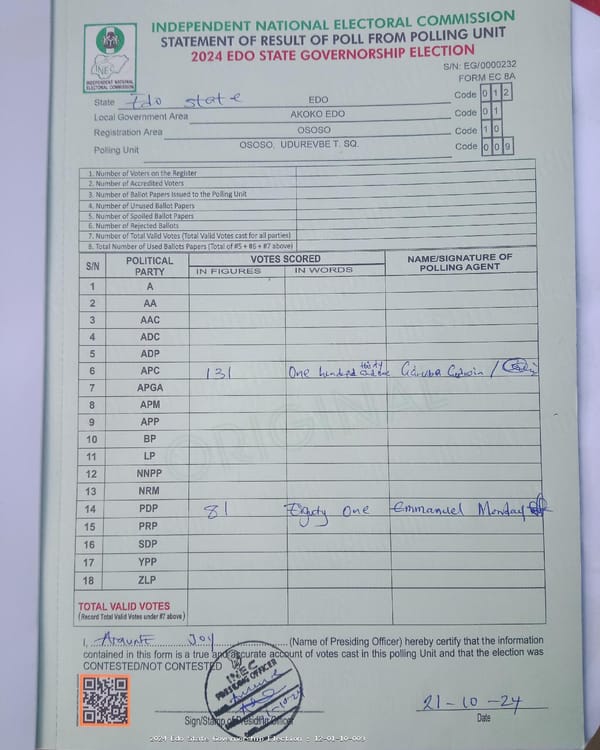 INDEPENDENT NATIONAL ELECTORAL COMMISSION
STATEMENT OF RESULT OF POLL FROM POLLING UNIT
2024 EDO STATE GOVERNORSHIP ELECTION
INEC
INDEPENDENT NATIONAL ELECTORAL COMMISSION
S/N: EG/0000232
FORM EC 8A
State Edo state EDO Code 0 1 2
Local Government Area AKOKO EDO Code 0 1
Registration Area OSOSO Code 1 0
Polling Unit OSOSO, UDUREVBE T. SQ. Code 0 0 9
1. Number of Voters on the Register
2. Number of Accredited Voters
3. Number of Ballot Papers Issued to the Polling Unit
4. Number of Unused Ballot Papers
5. Number of Spoiled Ballot Papers
6. Number of Rejected Ballots
7. Number of Total Valid Votes (Total Valid Votes cast for all parties)
8. Total Number of Used Ballots Papers (Total of #5 + #6 + #7 above)
S/N POLITICAL PARTY VOTES SCORED NAME/SIGNATURE OF POLLING AGENT
IN FIGURES IN WORDS
1 A
2 AA
3 AAC
4 ADC
5 ADP
6 APC 131 One hundred thirty
7 APGA
8 APM
9 APP
10 BP
11 LP
12 NNPP
13 NRM
14 PDP 81 Eighty One Emmanuel Monday
15 PRP
16 SDP
17 YPP
18 ZLP
ORIGINAL
TOTAL VALID VOTES
(Record Total Valid Votes under #7 above)
I, Joy (Name of Presiding Officer) hereby certify that the information
contained in this form is a true and accurate account of votes cast in this polling Unit and that the election was
CONTESTED/NOT CONTESTED
INEC
PRESIDING OFFICER
Sign/Stamp of Presiding Officer
21-10-24
Date
2024 Edo State Governorship Election : 12-01-10-009